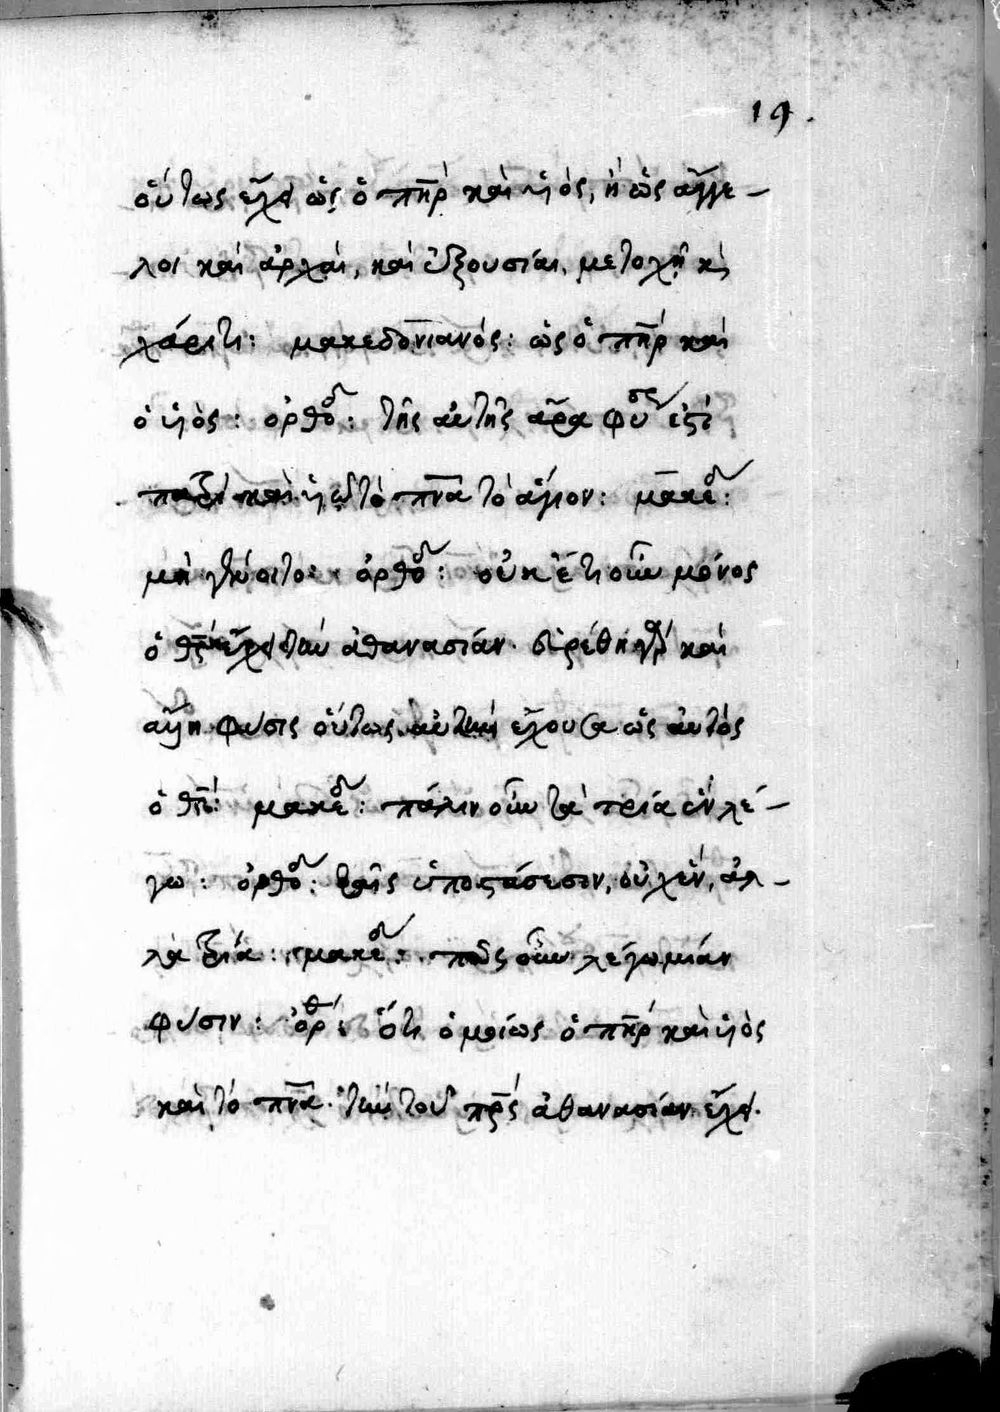 19.
οὕτως ἔχει ὡς ὁ πηρ καὶ υἱὸς, ἢ ὡς ἄγγε–
λοι καὶ ἀρχαὶ, καὶ ἐξουσίαι, μετοχῇ κὶ
χάριτι: μακεδονιανός: ὡς ὁ πηρ καὶ
ὁ υἱὸς: ὀρθοδ: τῆς αὐτῆς ἄρα φύσ ἐστὶ
καὶ τὸ πνα τὸ ἅγιον: μακεδ:
μὴ γένοιτο: ὀρθοδ: οὐκ ἔτι οὖν μόνος
ὁ θς ἔχει τὴν ἀθανασίαν. εὑρέθη γὰρ καὶ
ἄλλη φύσις οὕτως αὐτὴν ἔχουσα ὡς αὐτὸς
ὁ μακεδ: πάλιν οὖν τὰ τρία ἓν λέ–
γω: ὀρθοδ: ταῖς ὑποστάσεσιν, οὐχ ἓν, ἀλ–
λὰ τρία: μακεδ: πῶς οὖν λέγω μίαν
φύσιν: ὀρθ: ὅτι ὁμοίως ὁ πηρ καὶ υἱὸς
καὶ τὸ πνα. τὴν τοῦ πρς ἀθανασίαν ἔχει.